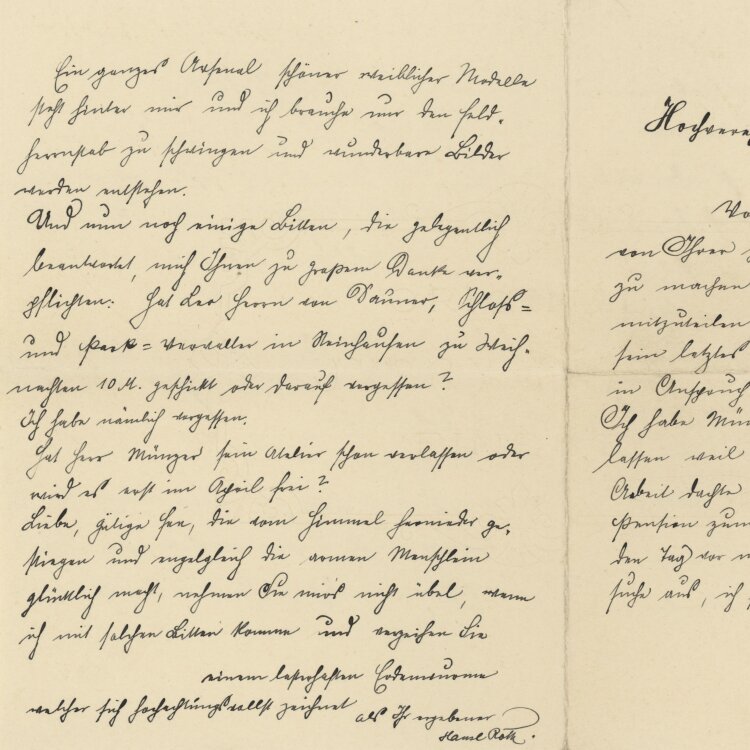 Ein ganzes Arsenal schöner weiblicher Modelle
steht hinter mir und ich brauche nur den Feld-
herrnstab zu schwingen und wunderbare Bilder
werden entstehen.
Und nun noch einige Bitten, die gelegentlich
beantwortet, mich Ihnen zu großem Danke ver-
pflichten: Hat Leo Herrn von Sauner, Schloss=
und Park=Verwalter in Steinhausen zu Weih-
nachten 10 M. geschickt oder darauf vergessen?
Ich habe nämlich vergessen.
Hat Herr Münzer sein Atelier schon verlassen oder
wird es erst im April frei?
Liebe, gütige Fee, die vom Himmel hernieder ge-
stiegen und engelgleich die armen Menschlein
glücklich macht, nehmen Sie mirs nicht übel, wenn
ich mit solchen Bitten komme und verzeihen Sie
einem lasterhaften Erdenwurme
welcher sich hochachtungsvollst zeichnet
als Ihr ergebener
Hansl Roth.
Hochvere
Vo
von Ihrer
zu machen
mitzuteilen
sein letztes
in Anspruch
Ich habe Mün
lassen weil
Arbeit dachte
Pension zum
den Tag vor
suche aus, ich